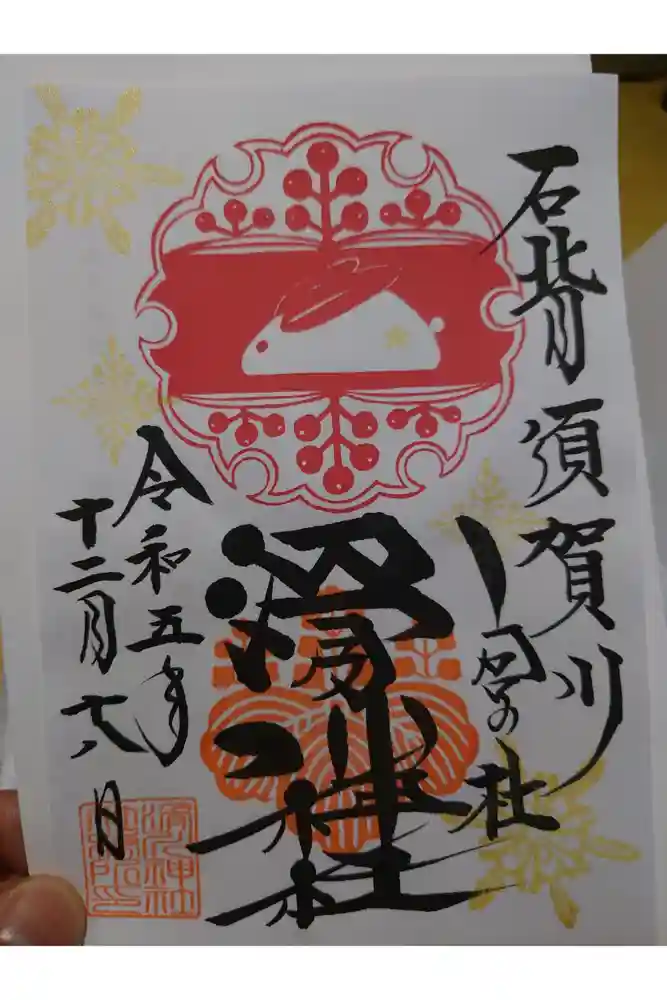 石背 須賀川
宮の杜
滑川神社
令和五年
十二月六日